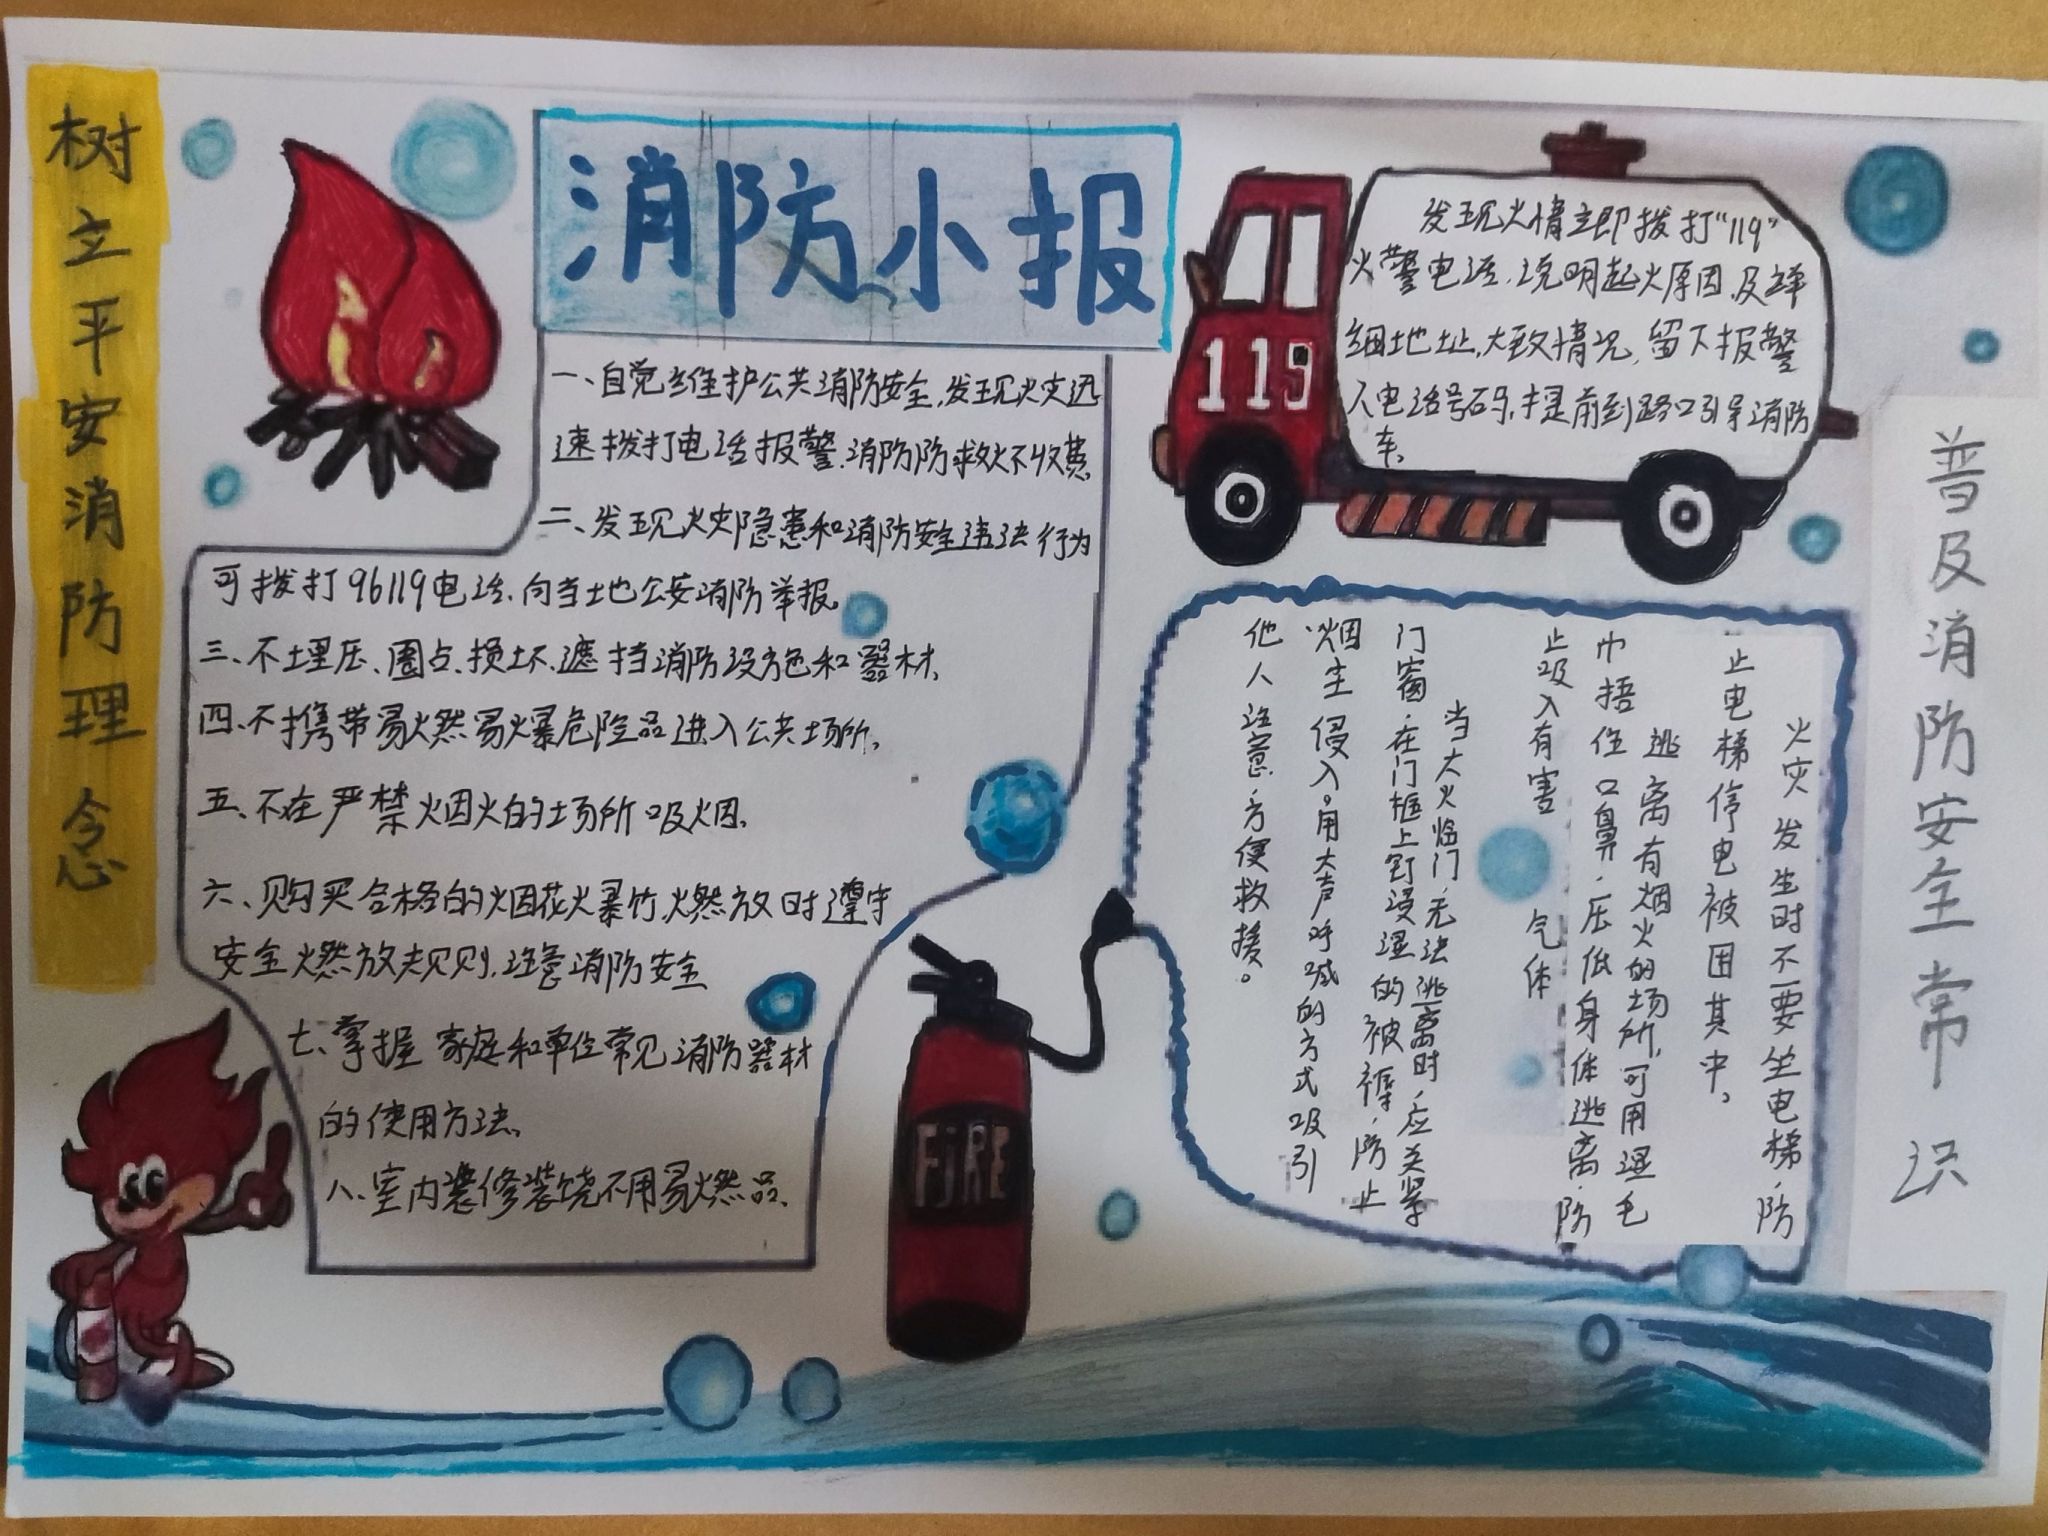 树立平安消防理念
消防小报
一、自觉维护公共消防安全,发现火灾迅
速拨打电话报警.消防防救火不收费.
二、发现火灾隐患和消防安全违法行为
可拨打96119电话.向当地公安消防举报.
三、不埋压、圈占.损坏.遮挡消防设施和器材.
四.不携带易燃易爆危险品进入公共场所.
五、不在严禁烟火的场所吸烟.
六、购买合格的烟花火暴竹.燃放时遵守
安全燃放规则.注意消防安全
七、掌握家庭和单位常见消防器材
的使用方法.
八、室内装修装饶不用易燃品.
发现火情立即拨打“119”
火警电话.说明起火原因.及详
细地址.大致情况.留下报警
人电话号码.提前到路口引导消防
车.
119
火灾发生时不要坐电梯.防
止电梯停电被困其中.
逃离有烟火的场所.可用湿毛
巾捂住口鼻.压低身体逃离.防
止吸入有害气体
当大火临门.无法逃离时.应关紧
门窗.在门框上钉浸湿的被褥.防止
烟尘侵入。用大声呼喊的方式吸引
他人注意.方便救援。
FiRE
普及消防安全常识